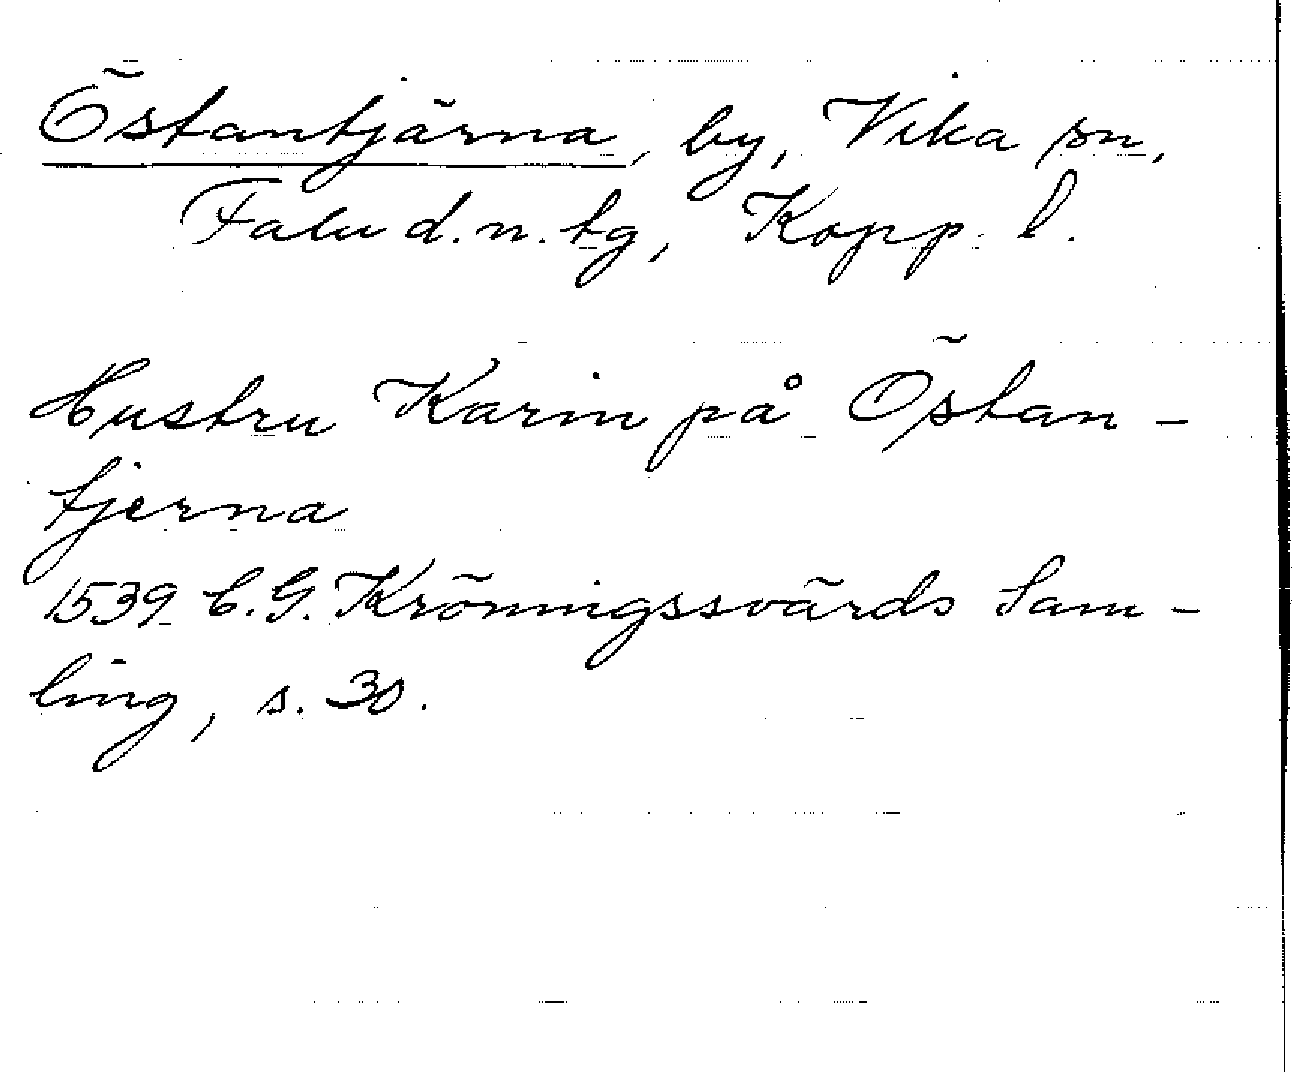 Östantjärna, by, Vika sn,
Falu d.n. tg, Kopp. l.
Hustru Karin på Östan-
tjerna
1539 C.G. Kröningssvärds Sam-
ling, s. 30.